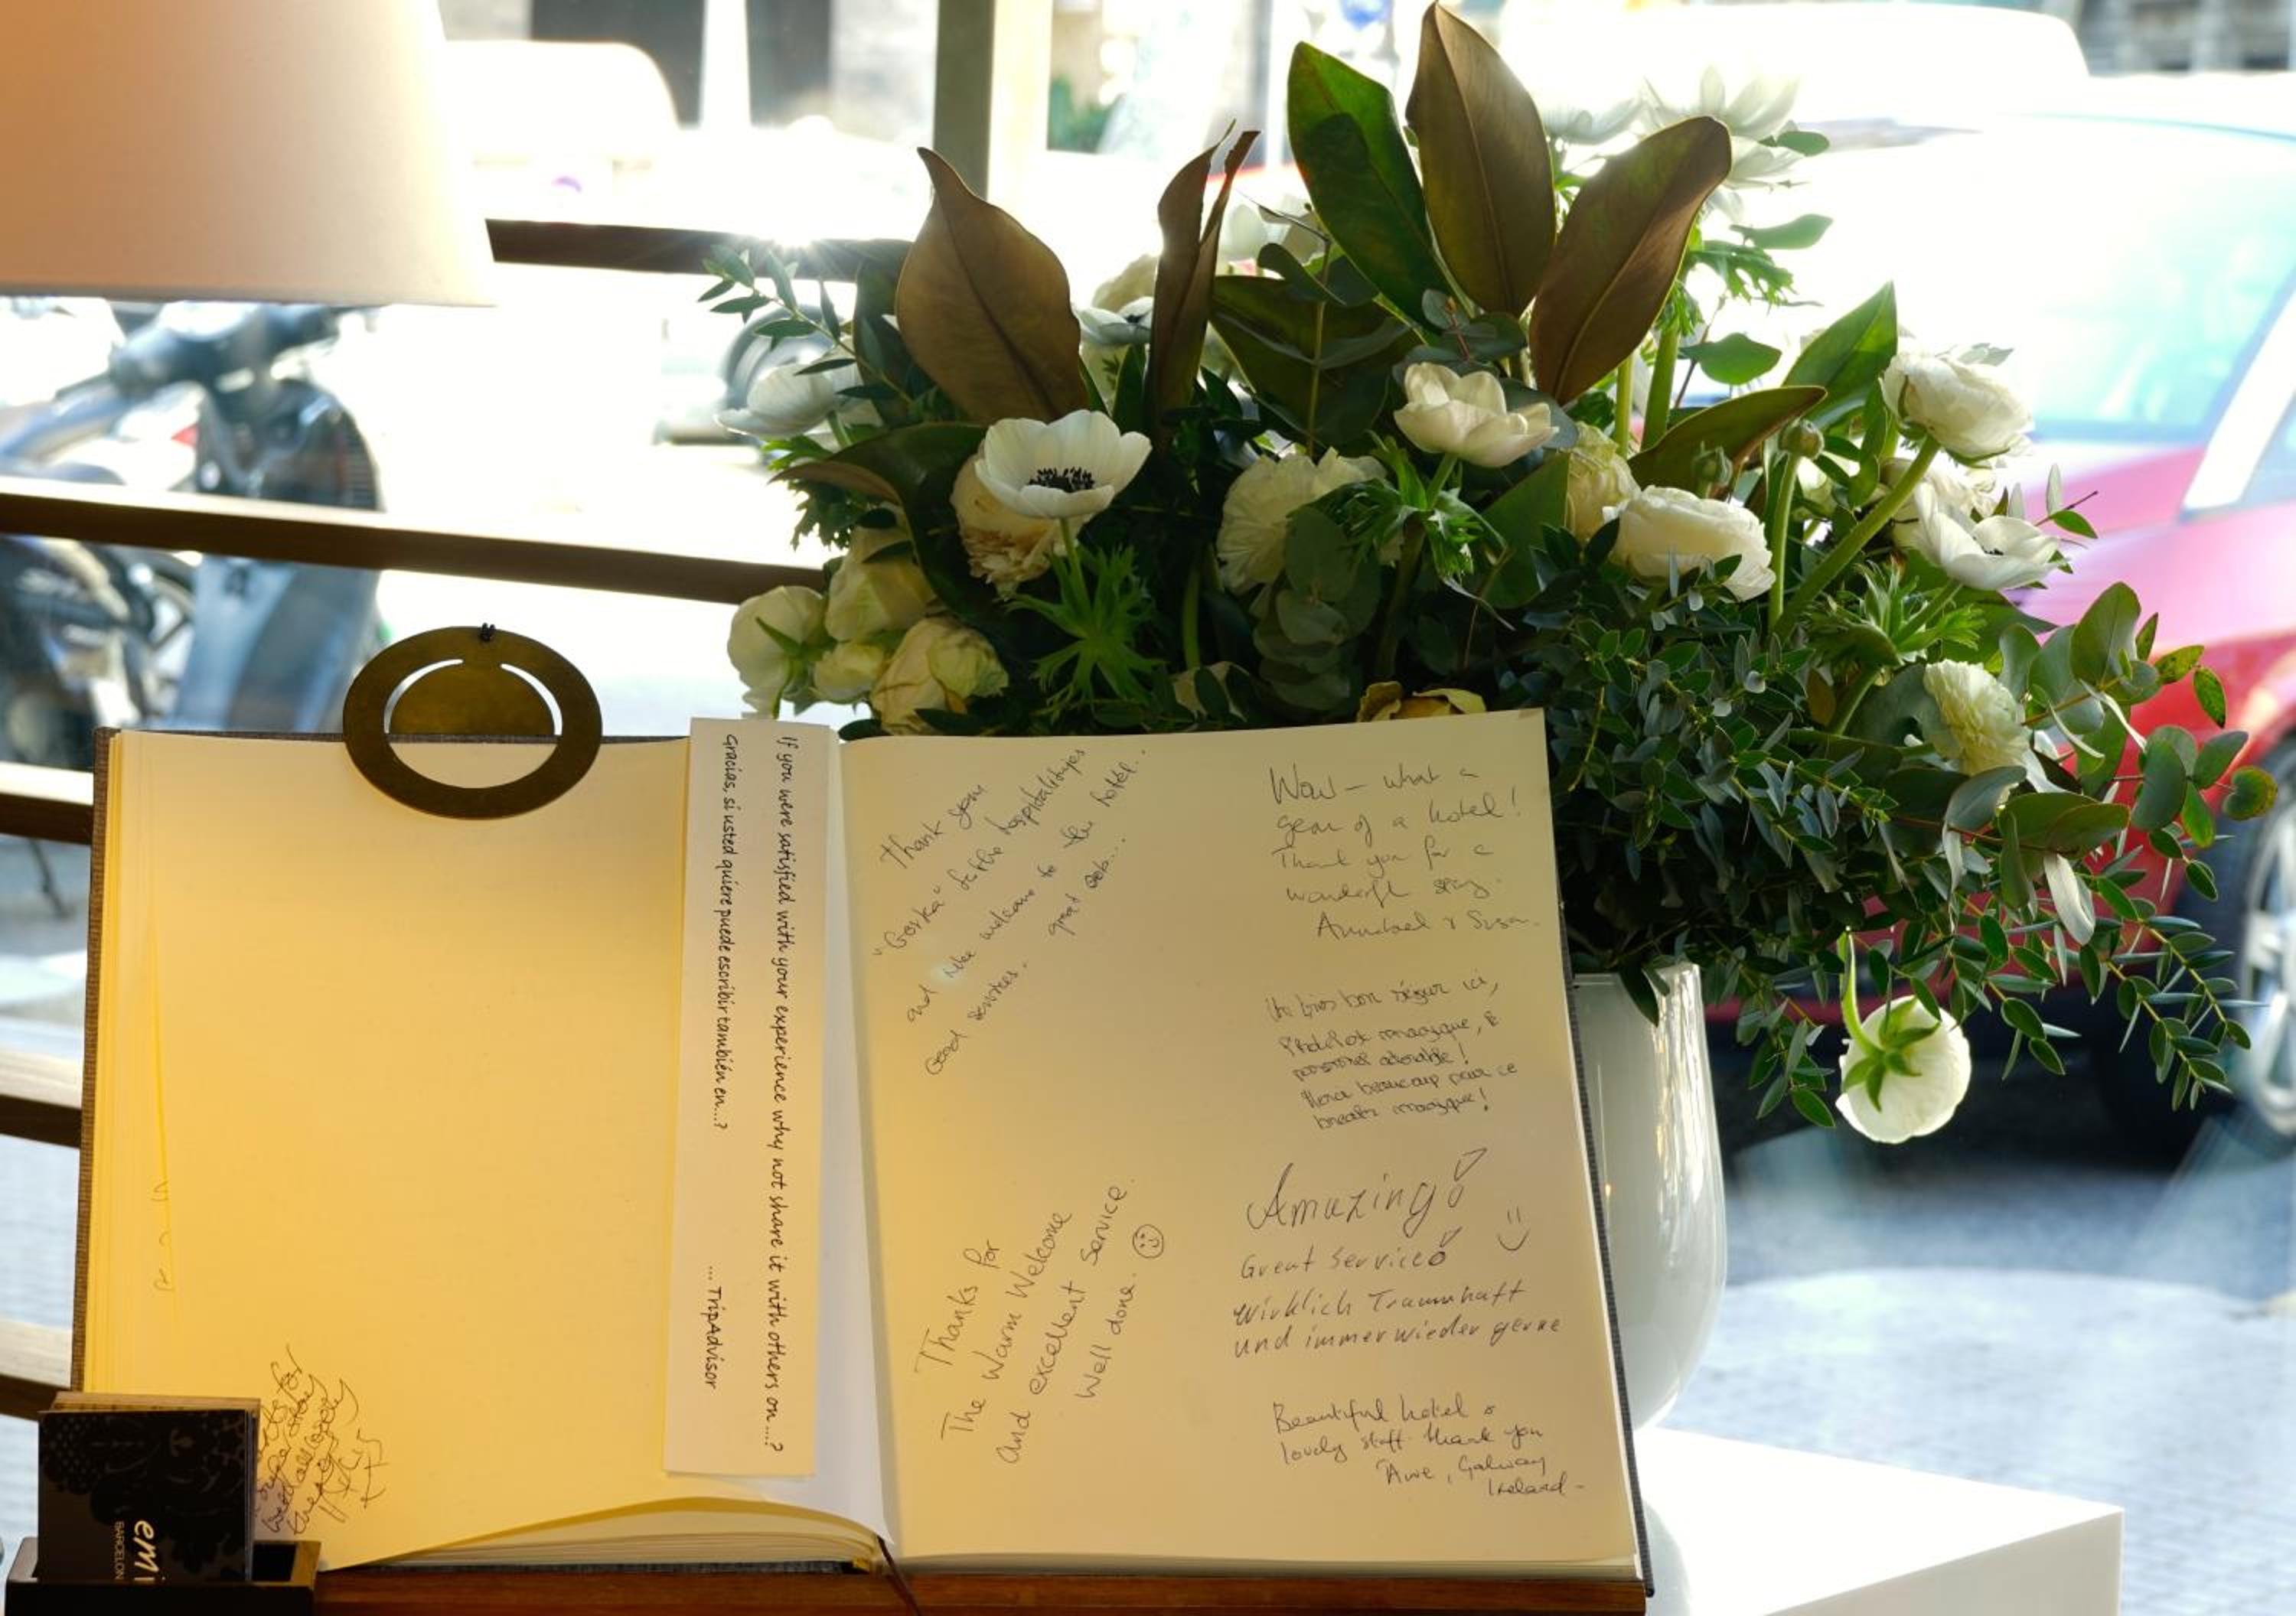 If you were satisfied with your experience why not share it with others on....?
Gracias, si usted quiere puede escribir también en...?
... TripAdvisor
Thank you
"Goska" for the hospitalitys
and welcome to the hotel..
Good services. great job...
Thanks for
The Warm Welcome
and excellent Service.
Well done.
Wow – what a
gem of a hotel!
Thank you for a
wonderful stay.
Annabael & Susan
Un très bon séjour ici,
magique,
personnel adorable!
beaucoup pour ce
magique!
Amazing!
Great Service!
Wirklich Traumhaft
und immer wieder gerne
Beautiful hotel &
lovely staff thank you
Galway
Ireland -
for
BARCELON